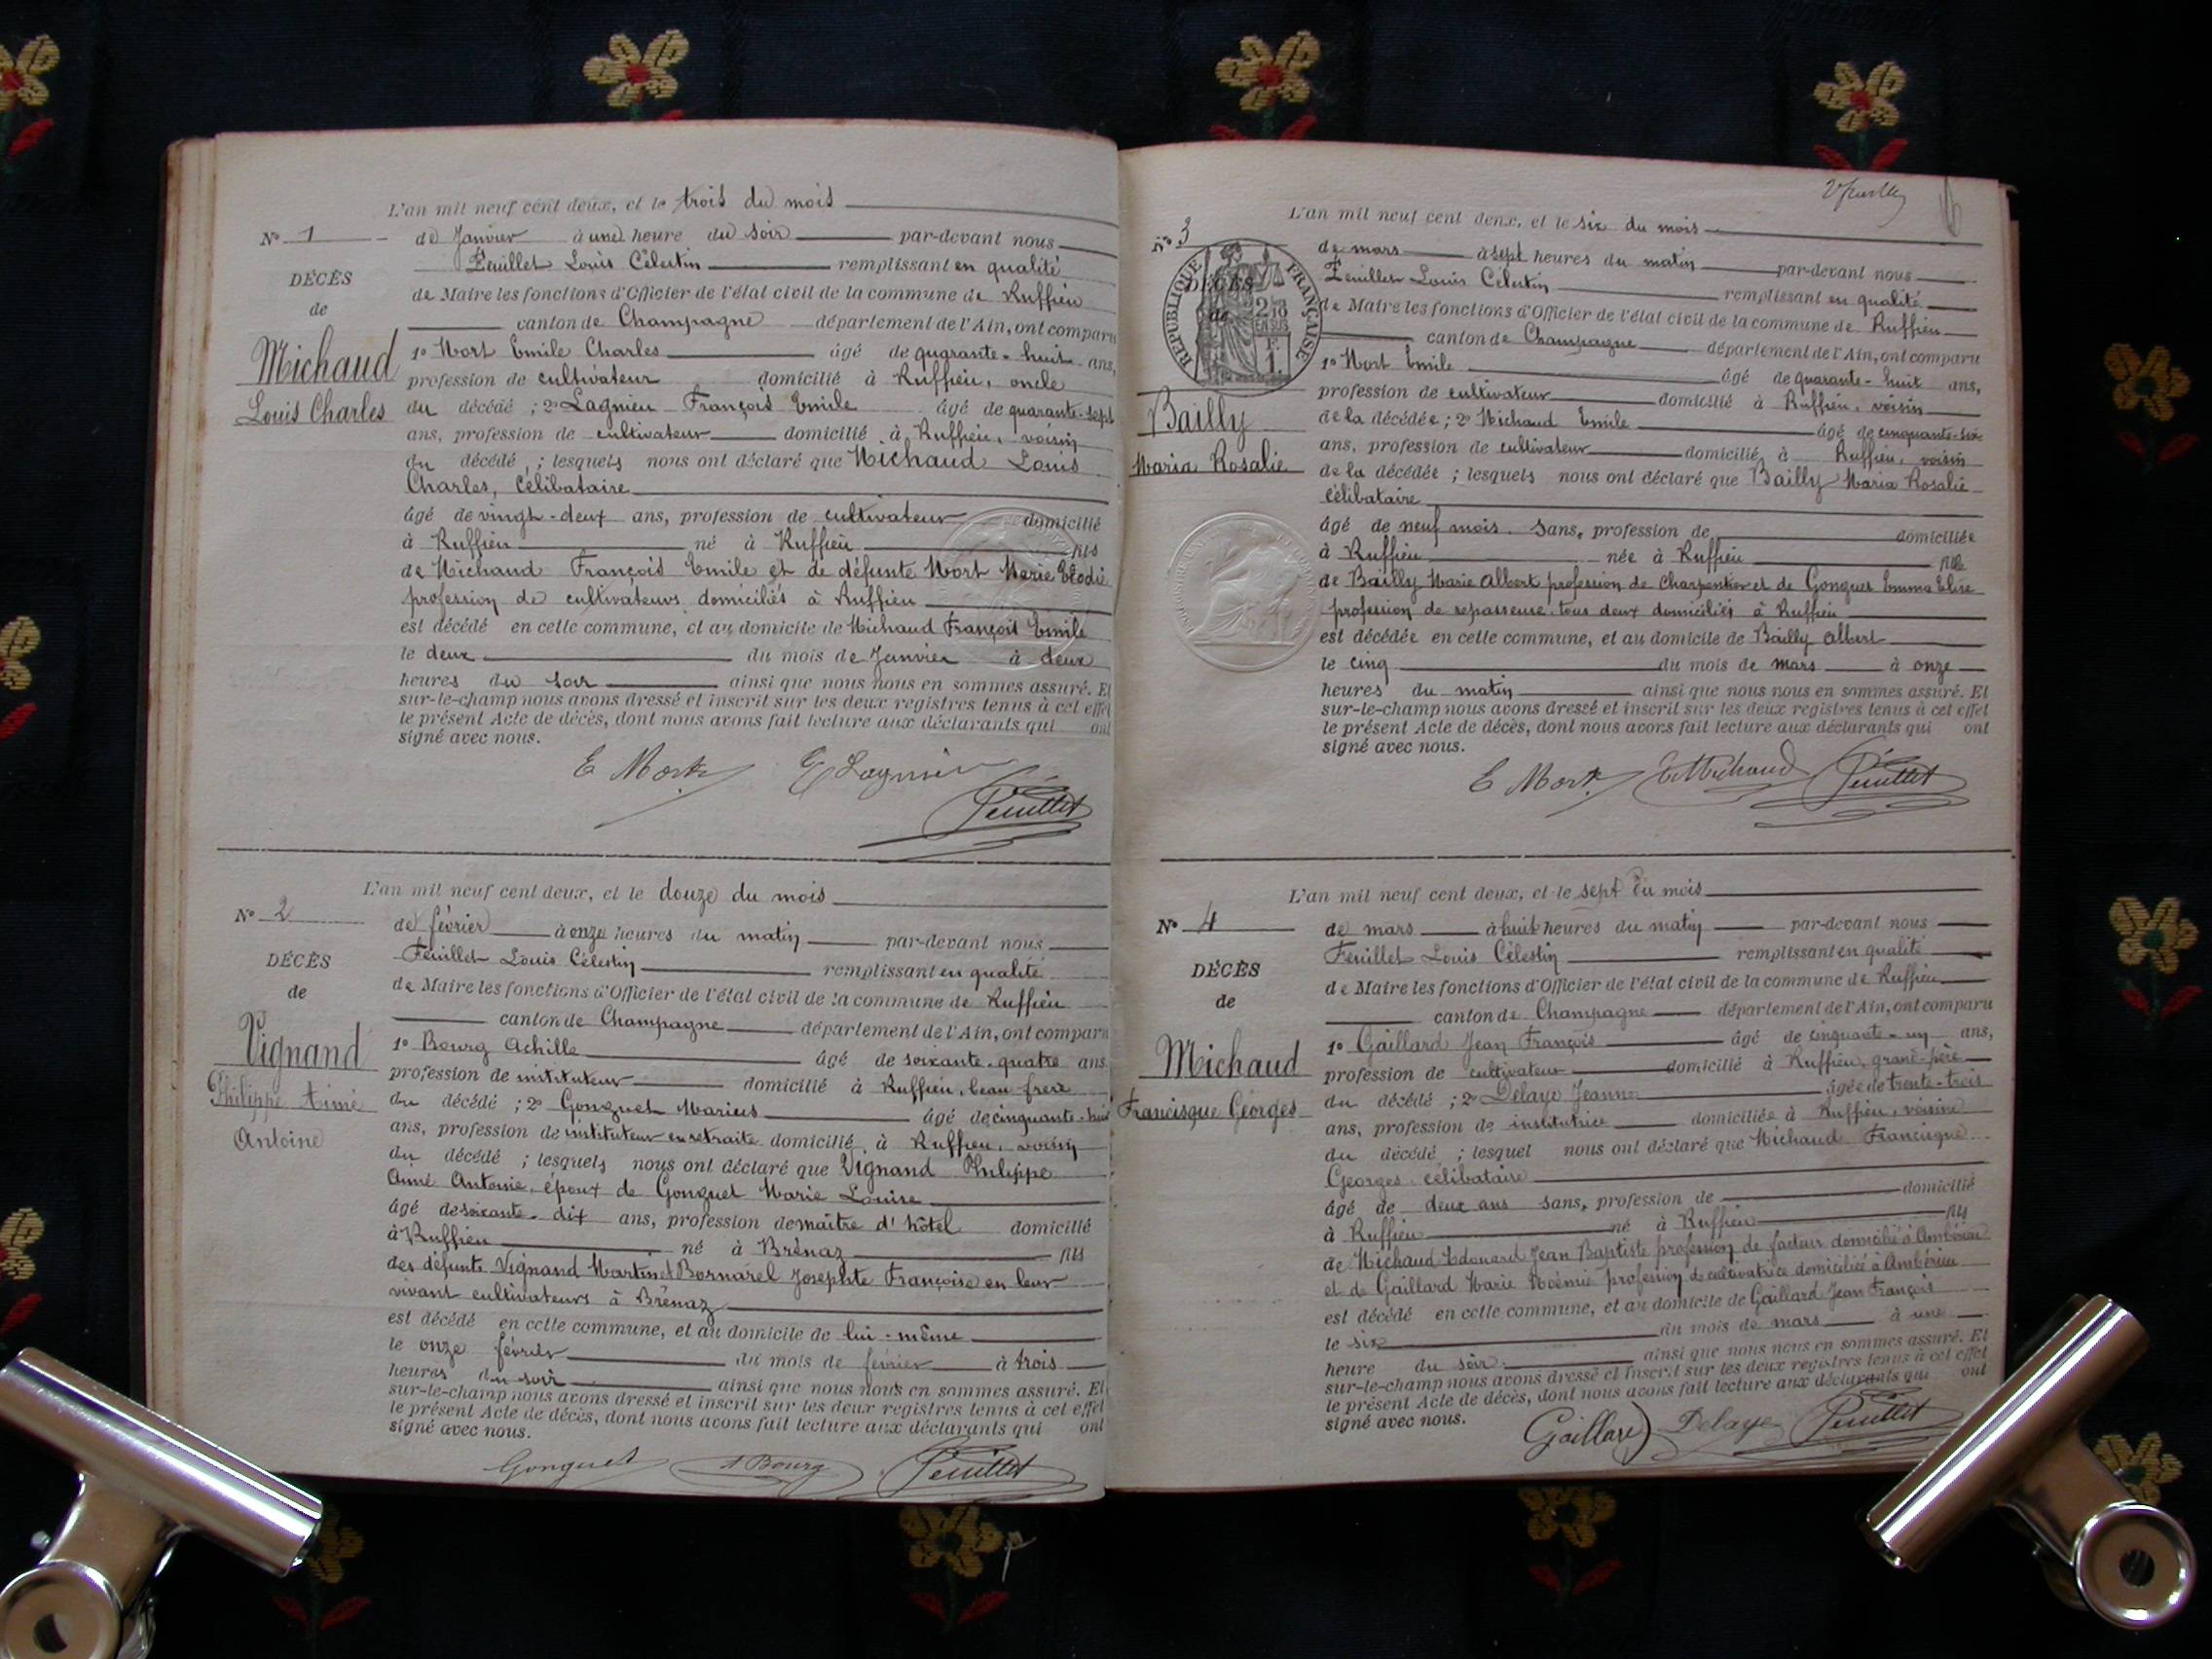 L'an mil neuf cent deux, et le trois du mois
N° 1
de Janvier à une heure du soir par-devant nous
Feuillet Louis Célestin remplissant en qualité
DÉCÈS
de Maire les fonctions d'Officier de l'état civil de la commune de Ruffieu
de
canton de Champagne département de l'Ain, ont comparu
Michaud
Louis Charles
1° Mort Emile Charles âgé de quarante-huit ans,
profession de cultivateur domicilié à Ruffieu, oncle
du décédé ; 2° Lagnieu François Emile âgé de quarante-sept
ans, profession de cultivateur domicilié à Ruffieu, voisin
du décédé ; lesquels nous ont déclaré que Michaud Louis
Charles, célibataire
âgé de vingt-deux ans, profession de cultivateur domicilié
à Ruffieu né à Ruffieu fils
de Michaud François Emile et de défunte Mort Marie Elodie
profession de cultivateurs domiciliés à Ruffieu
est décédé en cette commune, et au domicile de Michaud François Emile
le deux du mois de Janvier à deux
heures du soir ainsi que nous nous en sommes assuré. Et
sur-le-champ nous avons dressé et inscrit sur les deux registres tenus à cet effet
le présent Acte de décès, dont nous avons fait lecture aux déclarants qui ont
signé avec nous.
E Mort E Lagnieu
Feuillet
L'an mil neuf cent deux, et le douze du mois
N° 2
de février à onze heures du matin par-devant nous
Feuillet Louis Célestin remplissant en qualité
DÉCÈS
de Maire les fonctions d'Officier de l'état civil de la commune de Ruffieu
de
canton de Champagne département de l'Ain, ont comparu
Vignand
Philippe Aimé
Antoine
1° Bourg Achille âgé de soixante-quatre ans
profession de instituteur domicilié à Ruffieu, beau frere
du décédé ; 2° Gonguet Marius âgé de cinquante-huit
ans, profession de instituteur en retraite domicilié à Ruffieu, voisin
du décédé ; lesquels nous ont déclaré que Vignand Philippe
Aimé Antoine, époux de Gonguet Marie Louise
âgé de soixante-dix ans, profession de maître d'hôtel domicilié
à Ruffieu né à Brénaz fils
des défunts Vignand Martin et Bornarel Josephte Françoise en leur
vivant cultivateurs à Brénaz
est décédé en cette commune, et au domicile de lui-même
le onze février du mois de février à trois
heures du soir ainsi que nous nous en sommes assuré. Et
sur-le-champ nous avons dressé et inscrit sur les deux registres tenus à cet effet
le présent Acte de décès, dont nous avons fait lecture aux déclarants qui ont
signé avec nous.
Gonguet A Bourg Feuillet
L'an mil neuf cent deux, et le six du mois
N° 3
de mars à sept heures du matin par-devant nous
Feuillet Louis Célestin remplissant en qualité
DÉCÈS
de
RÉPUBLIQUE FRANÇAISE
2/10 EN SUS
F. 1.
de Maire les fonctions d'Officier de l'état civil de la commune de Ruffieu
canton de Champagne département de l'Ain, ont comparu
Bailly
Maria Rosalie
1° Mort Emile âgé de quarante-huit ans,
profession de cultivateur domicilié à Ruffieu, voisin
de la décédée ; 2° Michaud Emile âgé de cinquante-six
ans, profession de cultivateur domicilié à Ruffieu, voisin
de la décédée ; lesquels nous ont déclaré que Bailly Maria Rosalie
célibataire
âgé de neuf mois. sans, profession de domiciliée
à Ruffieu née à Ruffieu fille
de Bailly Marie Albert profession de charpentier et de Gonguet Emma Elise
profession de repasseuse tous deux domiciliés à Ruffieu
est décédée en cette commune, et au domicile de Bailly Albert
le cinq du mois de mars à onze
heures du matin ainsi que nous nous en sommes assuré. Et
sur-le-champ nous avons dressé et inscrit sur les deux registres tenus à cet effet
le présent Acte de décès, dont nous avons fait lecture aux déclarants qui ont
signé avec nous.
E Mort E Michaud Feuillet
L'an mil neuf cent deux, et le sept du mois
N° 4
de mars à huit heures du matin par-devant nous
Feuillet Louis Célestin remplissant en qualité
DÉCÈS
de Maire les fonctions d'Officier de l'état civil de la commune de Ruffieu
de
canton de Champagne département de l'Ain, ont comparu
Michaud
Francisque Georges
1° Gaillard Jean François âgé de cinquante-un ans,
profession de cultivateur domicilié à Ruffieu, grand-père
du décédé ; 2° Delaye Jeanne âgée de trente-trois
ans, profession de institutrice domiciliée à Ruffieu, voisine
du décédé ; lesquel nous ont déclaré que Michaud Francisque
Georges célibataire
âgé de deux ans sans, profession de domicilié
à Ruffieu né à Ruffieu fils
de Michaud Edouard Jean Baptiste profession de facteur domicilié à Ambérieu
et de Gaillard Marie Noémie profession de cultivatrice domiciliée à Ambérieu
est décédé en cette commune, et au domicile de Gaillard Jean François
le six du mois de mars à une
heure du soir ainsi que nous nous en sommes assuré. Et
sur-le-champ nous avons dressé et inscrit sur les deux registres tenus à cet effet
le présent Acte de décès, dont nous avons fait lecture aux déclarants qui ont
signé avec nous.
Gaillard Delaye Feuillet